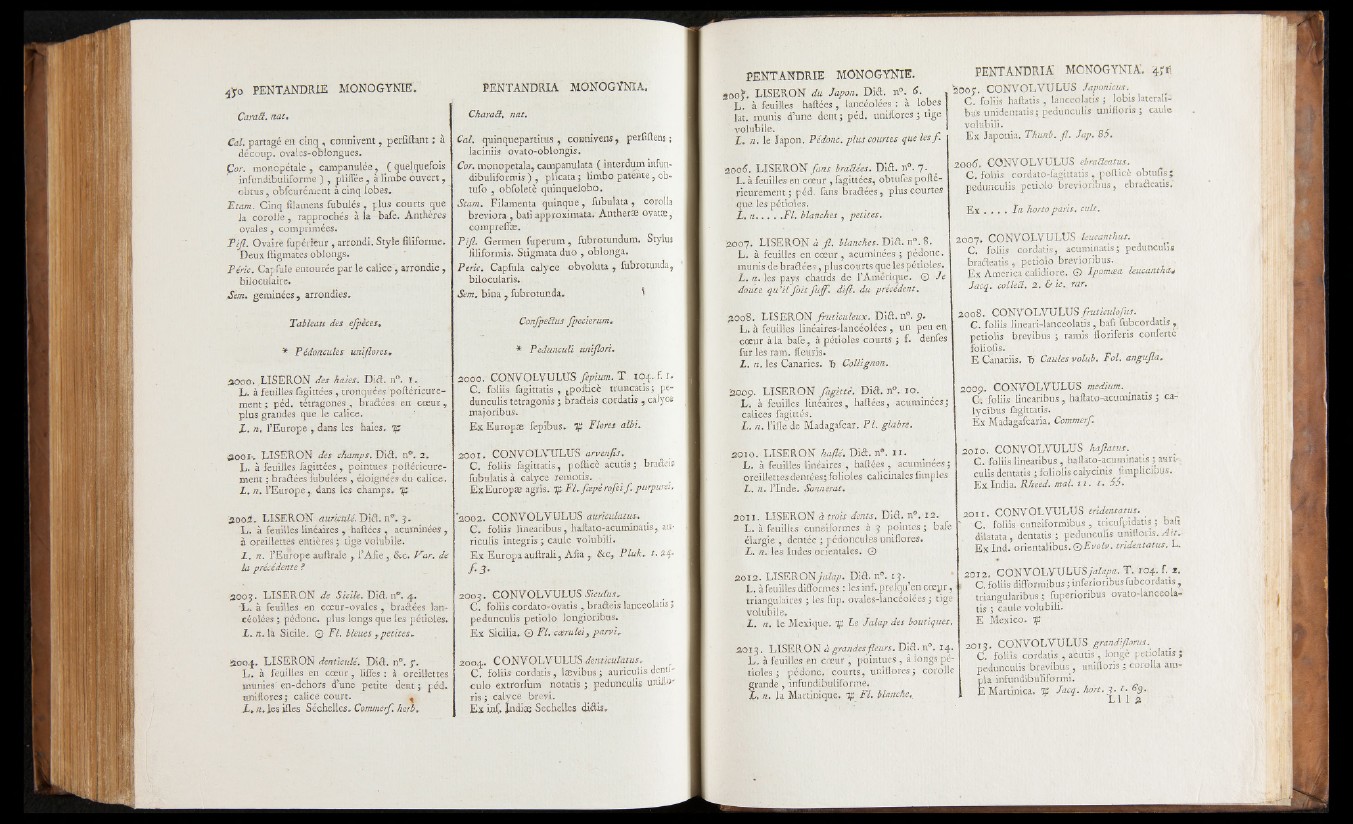 450 PENTANDRIE MONOGYNIE.
Caract. nat.
Cal. partagé en cinq, connivent, persistant ; à
découp. ovales-oblongues.
Cor. monopétale, campanulée, (quelquefois
infundibuliforme), plissée, à limbe ouvert,
obtus, obscurément à cinq lobes.
Etam. Cinq filamens subulés, plus courts que
la corolle, rapprochés à la base. Anthères
ovales, comprimées.
Pist. Ovaire supérieur, arrondi. Style filiforme.
Deux stigmates oblongs.
Péric. Capsule entourée par le calice, arrondie,
biloculaire.
Sem. geminées, arrondies.
Tableau des espèces.
* Pédoncules uniflores.
2000. LISERON des haies. Dict. n°. 1.
L. à feuilles sagittées, tronquées postérieure-
ment ; péd. tétragones, bractées en cœur,
plus grandes que le calice.
L. n. l'Europe, dans les haies. ♃
2001. LISERON des champs. Dict. n°. 2.
L. à feuilles sagittées, pointues postérieure-
ment ; bractées subulées, éloignées du calice.
L. n. l'Europe, dans les champs. ♃
2002. LISERON auriculé. Dict. n°. 3.
L. à feuilles linéaires, hastées, acuminées,
à oreillettes entières ; tige volubile.
L. n. l'Europe australe, l'Asie, &c. Var. de
la précédente ?
2003. LISERON de Sicile. Dict. n°. 4.
L. à feuilles en cœur-ovales, bractées lan-
céolées ; pédonc. plus longs que les pétioles.
L. n. la Sicile. ☉ Fl. bleues, petites.
2004. LISERON denticulé. Dict. n°. 5.
L. à feuilles en cœur, lisses : à oreillettes
munies en-dehors d'une petite dent ; péd.
uniflores ; calice court.
L. n. les isles Séchelles. Commers. herb.
PENTANDRIA MONOGYNIA.
Charact. nat.
Cal. quinquepartitus, connivens, persistens ;
laciniis ovato-oblongis.
Cor. monopetala, campanulata (interdum infun-
dibuliformis), plicata ; limbo patente, ob-
tuso, obsoletè quinquelobo.
Stam. Filamenta quinque, subulata, corolla
breviora, basi approximata. Antheræ ovatæ,
compressæ.
Pist. Germen superum, subrotundum. Stylus
filiformis. Stigmata duo, oblonga.
Peric. Capsula calyce obvoluta, subrotunda,
bilocularis.
Sem. bina, subrotunda.
Conspectus specierum.
* Pedunculi uniflori.
2000. CONVOLVULUS sepium. T 104. f. 1.
C. foliis sagittatis, posticè truncatis ; pe-
dunculis tetragonis ; bracteis cordatis, calyce
majoribus.
Ex Europæ sepibus. ♃ Flores albi.
2001. CONVOLVULUS arvensis.
C. foliis sagittatis, posticè acutis ; bracteis
subulatis à calyce remotis.
Ex Europæ agris. ♃ Fl. sæpè rosei s. purpurei.
2002. CONVOLVULUS auriculatus.
C. foliis linearibus, hastato-acuminatis, au-
riculis integris ; caule volubili.
Ex Europa australi, Asia, &c, Pluk. t. 24.
f. 3.
2003. CONVOLVULUS Siculus.
C. foliis cordato-ovatis, bracteis lanceolatis ;
pedunculis petiolo longioribus.
Ex Sicilia. ☉ Fl. cærulei, parvi.
2004. CONVOLVULUS denticulatus.
C. foliis cordatis, lævibus ; auriculis denti-
culo extrorsum notatis ; pedunculis uniflo-
ris ; calyce brevi.
Ex ins. Indiæ Sechelles dictis.
PENTANDRIE MONOGYNIE.
2005. LISERON du Japon. Dict. n°. 6.
L. à feuilles hastées, lancéolées : à lobes
lat. munis d'une dent ; péd. uniflores ; tige
volubile.
L. n. le Japon. Pédonc. plus courtes que les f.
2006. LISERON sans bractées. Dict. n°. 7.
L. à feuilles en cœur, sagittées, obtuses posté-
rieurement ; péd. sans bractées, plus courtes
que les pétioles.
L. n. . . . . .Fl. blanches, petites.
2007. LISERON à fl. blanches. Dict. n°. 8.
L. à feuilles en cœur, acuminées ; pédonc.
munis de bractées, plus courts que les pétioles.
L. n. les pays chauds de l'Amérique. ☉ Je
doute qu'il soit suff. dist. du précédent.
2008. LISERON fruticuleux. Dict. n°. 9.
L. à feuilles linéaires-lancéolées, un peu en
cœur à la base, à pétioles courts ; f. denses
sur les ram. fleuris.
L. n. les Canaries. ♄ Collignon.
2009. LISERON sagitté. Dict. n°. 10.
L. à feuilles linéaires, hastées, acuminées ;
calices sagittés.
L. n. l'isle de Madagascar. Pl. glabre.
2010. LISERON hasté. Dict. n°. 11.
L. à feuilles linéaires, hastées, acuminées ;
oreillettes dentées ; folioles calicinales simples
L. n. l'Inde. Sonnerat.
2011. LISERON à trois dents. Dict. n°. 12.
L. à feuilles cuneiformes à 3 pointes ; base
élargie, dentée ; pédoncules uniflores.
L. n. les Indes orientales. ☉
2012. LISERON jalap. Dict. n°. 13.
L. à feuilles difformes : les inf. presqu'en cœur,
triangulaires ; les sup. ovales-lancéolées ; tige
volubile.
L. n. le Mexique. ♃ Le Jalap des boutiques.
2013. LISERON à grandes fleurs. Dict. n°. 14.
L. à feuilles en cœur, pointues, à longs pé-
tioles ; pédonc. courts, uniflores ; corolle
grande, infundibuliforme.
L. n. la Martinique. ♃ Fl. blanche.
PENTANDRIA MONOGYNIA. 451
2005. CONVOLVULUS Japonicus.
C. foliis hastatis, lanceolatis ; lobis laterali-
bus unidentatis ; pedunculis unifloris ; caule
volubili.
Ex Japonia. Thunb. fl. Jap. 85.
2006. CONVOLVULUS ebracteatus.
C. foliis cordato-sagittatis, posticè obtusis ;
pedunculis petiolo brevioribus, ebracteatis.
Ex . . . . In horto paris. cult.
2007. CONVOLVULUS leucanthus.
C. foliis cordatis, acuminatis ; pedunculis
bracteatis, petiolo brevioribus.
Ex America calidiore. ☉ Ipomæa leucantha.
Jacq. collect. 2. & ic. rar.
2008. CONVOLVULUS fruticulosus.
C. foliis lineari-lanceolatis, basi subcordatis,
petiolis brevibus ; ramis floriferis confertè
foliosis.
E Canariis. ♄ Caules volub. Fol. angusta.
2009. CONVOLVULUS medium.
C. foliis linearibus, hastato-acuminatis ; ca-
lycibus sagittatis.
Ex Madagascaria. Commers.
2010. CONVOLVULUS hastatus.
C. foliis linearibus, hastato-acuminatis ; auri-
culis dentatis ; foliolis calycinis simplicibus.
Ex India. Rheed. mal. 11. t. 55.
2011. CONVOLVULUS tridentatus.
C. foliis cuneiformibus, tricuspidatis ; basi
dilatata, dentatis ; pedunculis unifloris. Ait.
Ex Ind. orientalibus. ☉ Evolv. tridentatus. L.
2012. CONVOLVULUS jalapa. T. 104. f. 2,
C. foliis difformibus ; inferioribus subcordatis,
triangularibus ; superioribus ovato-lanceola-
tis ; caule volubili.
E Mexico. ♃
2013. CONVOLVULUS grandiflorus.
C. foliis cordatis, acutis, longè petiolatis ;
pedunculis brevibus, unifloris ; corolla am-
pla infundibuliformi.
E Martinica. ♃ Jacq. hort. 3. t. 69.
L l l 2